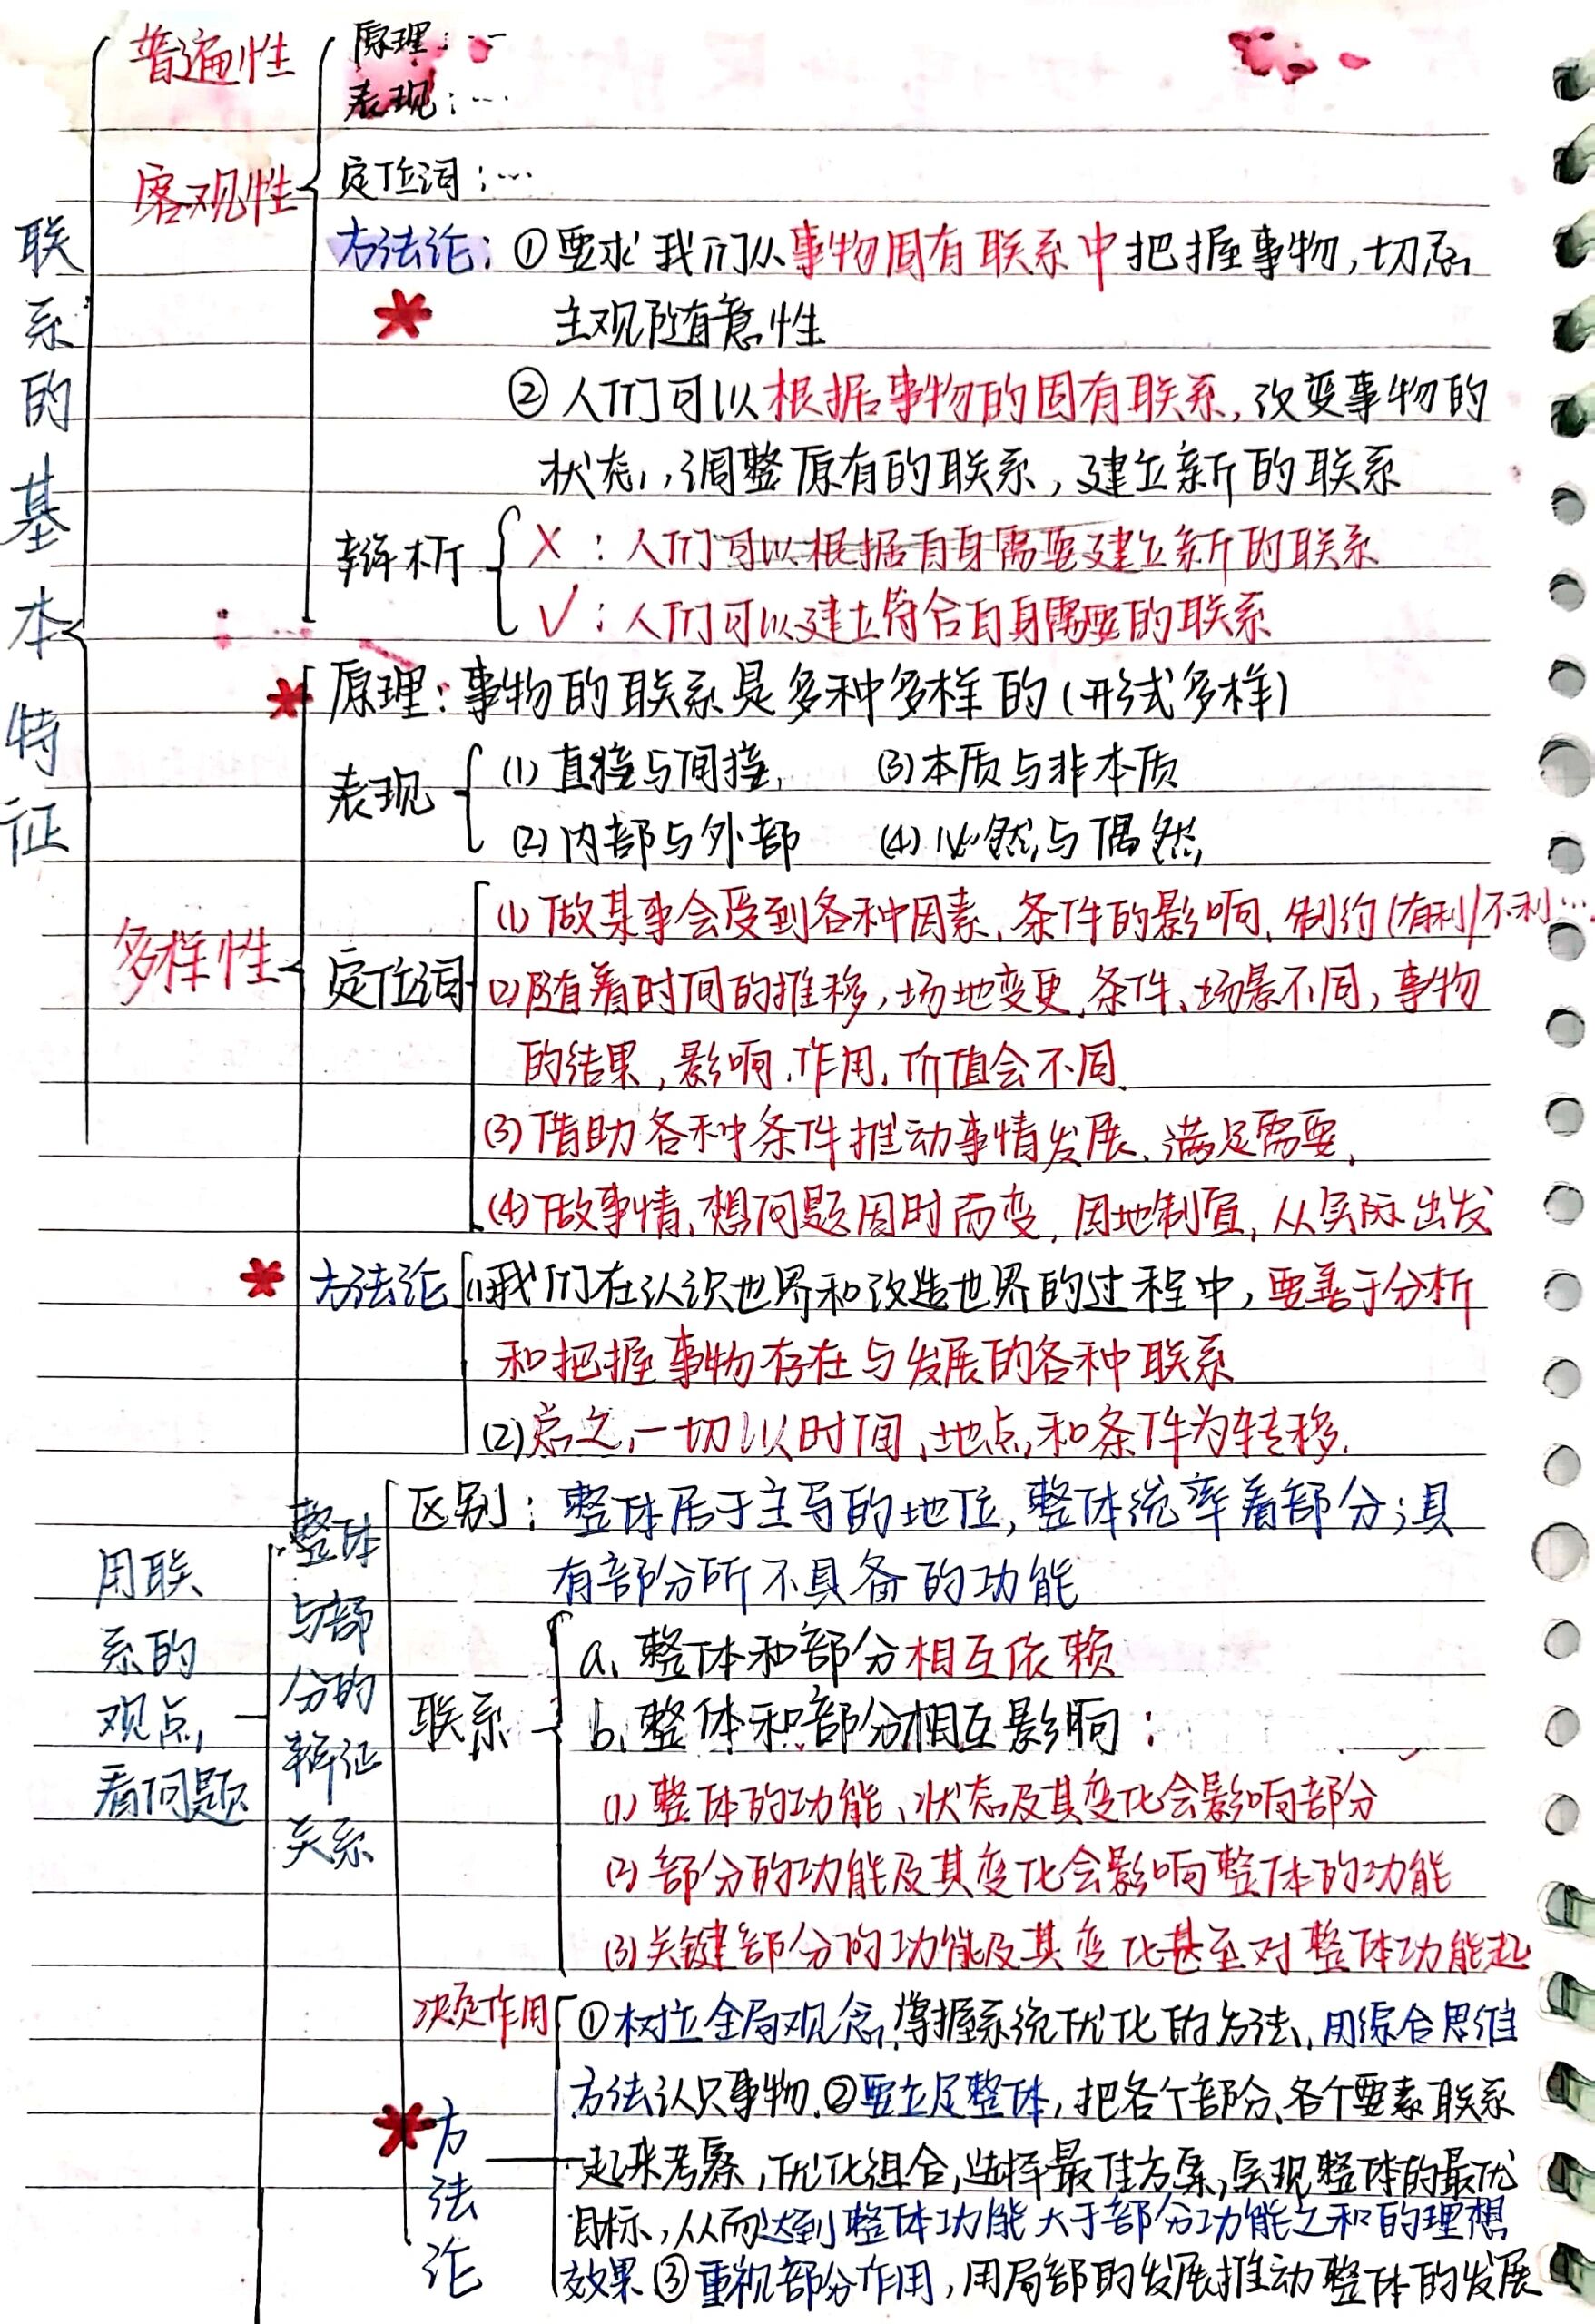 联系的基本特征
普遍性
原理：…
表现：…
客观性
定位词：…
方法论：①要求我们从事物固有联系中把握事物，切忌
主观随意性
②人们可以根据事物的固有联系，改变事物的
状态，调整原有的联系，建立新的联系
辨析
X：人们可以根据自身需要建立新的联系
√：人们可以建立符合自身需要的联系
多样性
原理：事物的联系是多种多样的(形式多样)
表现
(1)直接与间接 (3)本质与非本质
(2)内部与外部 (4)必然与偶然
定位词
(1)做某事会受到各种因素、条件的影响、制约(有利/不利…
(2)随着时间的推移，场地变更、条件、场景不同，事物
的结果，影响、作用、价值会不同
(3)借助各种条件推动事情发展、满足需要
(4)做事情、想问题因时而变，因地制宜，从实际出发
方法论
(1)我们在认识世界和改造世界的过程中，要善于分析
和把握事物存在与发展的各种联系
(2)总之，一切以时间、地点和条件为转移.
用联
系的
观点
看问题
整体
与部
分的
辩证
关系
区别：整体居于主导的地位，整体统率着部分；具
有部分所不具备的功能
联系
a、整体和部分相互依赖
b、整体和部分相互影响：
(1)整体的功能、状态及其变化会影响部分
(2)部分的功能及其变化会影响整体的功能
(3)关键部分的功能及其变化甚至对整体功能起
决定作用
方法论
①树立全局观念，掌握系统优化的方法，用综合思维
方法认识事物.②要立足整体，把各个部分、各个要素联系
起来考察，优化组合，选择最佳方案，实现整体的最优
目标，从而达到整体功能大于部分功能之和的理想
效果③重视部分作用，用局部的发展推动整体的发展